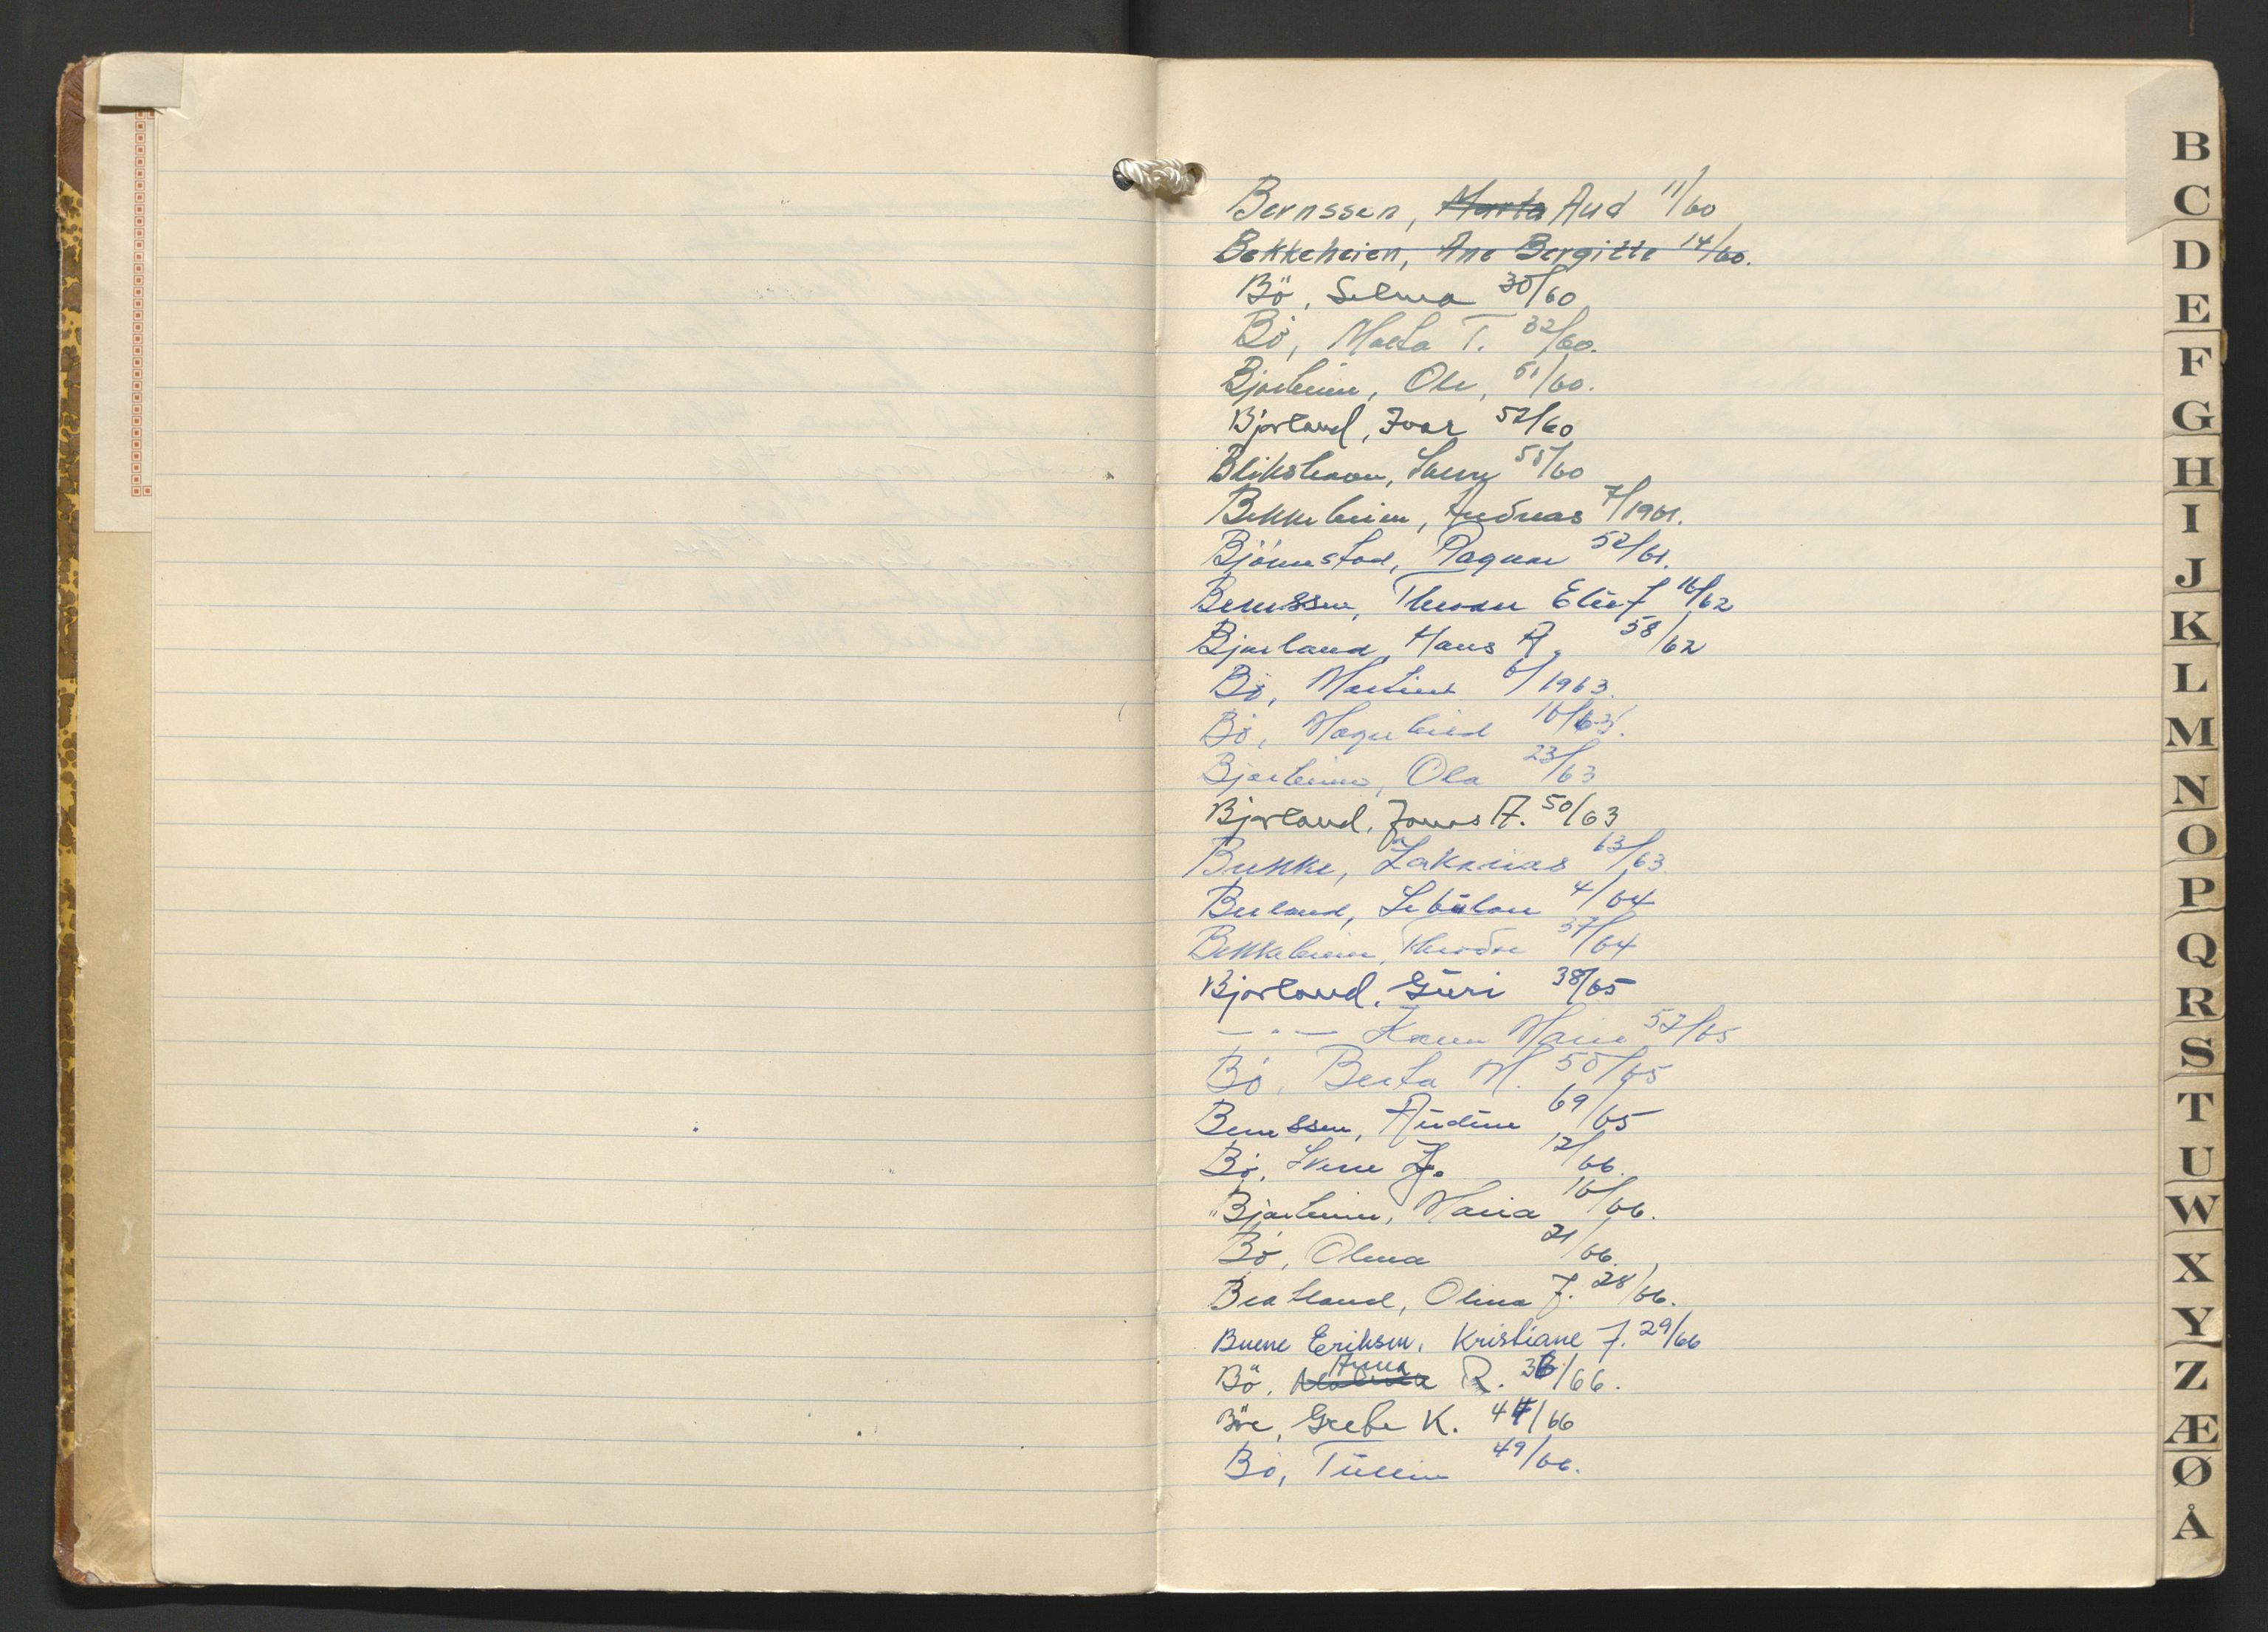 Bernssen, Marta Aud 11/60
Bekkeheien, Ane Bergitte 14/60.
Bö, Selma 30/60
Bö, Marta T. 32/60.
Bjorheim, Ole, 51/60.
Bjorland, Ivar 52/60
Blikshavn, 55/60
Bekkeheien, Andreas 7/1961.
Björnestad, Ragnar 52/61.
Bernssen, Theodor Elief 16/62
Bjorland, Hans A. 58/62
Bö, Martine 6/1963.
Bö, Magnhild 16/63.
Bjorheim, Ola 23/63
Bjorland, Jonas A. 50/63
Bukke, Zakarias 63/63
Berland, 4/64
Bekkeheien, Theodor 37/64
Bjorland, Guri 38/65
— " — Maria 52/65
Bö, Berta M. 55/65
Bernssen, Audun 69/65
Bö, 12/66.
Bjorheim, Maria 16/66.
Bö, Olena 21/66.
Bratland, Olina J. 28/66.
Buene Eriksen, Kristiane J. 29/66
Bö, Anna R. 36/66.
Böe, Grete K. 44/66
Bö, Tullin 49/66.
B
C
D
E
F
G
H
I
J
K
L
M
N
O
P
Q
R
S
T
U
W
X
Y
Z
Æ
Ø
Å